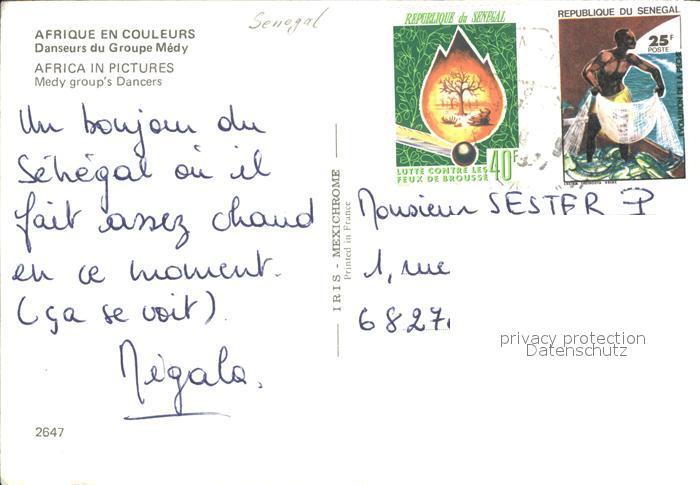 AFRIQUE EN COULEURS
Danseurs du Groupe Médy
AFRICA IN PICTURES
Medy group's Dancers
Senegal
Un bonjour du
Sénégal où il
fait assez chaud
en ce moment.
(ça se voit).
Mégala.
2647
IRIS - MEXICHROME
Printed in France
REPUBLIQUE du SENEGAL
LUTTE CONTRE LES
FEUX DE BROUSSE
40F
REPUBLIQUE DU SENEGAL
25F
POSTE
L'EVOLUTION DE LA PECHE
Monsieur SESTER P
1, rue
6827
privacy protection
Datenschutz